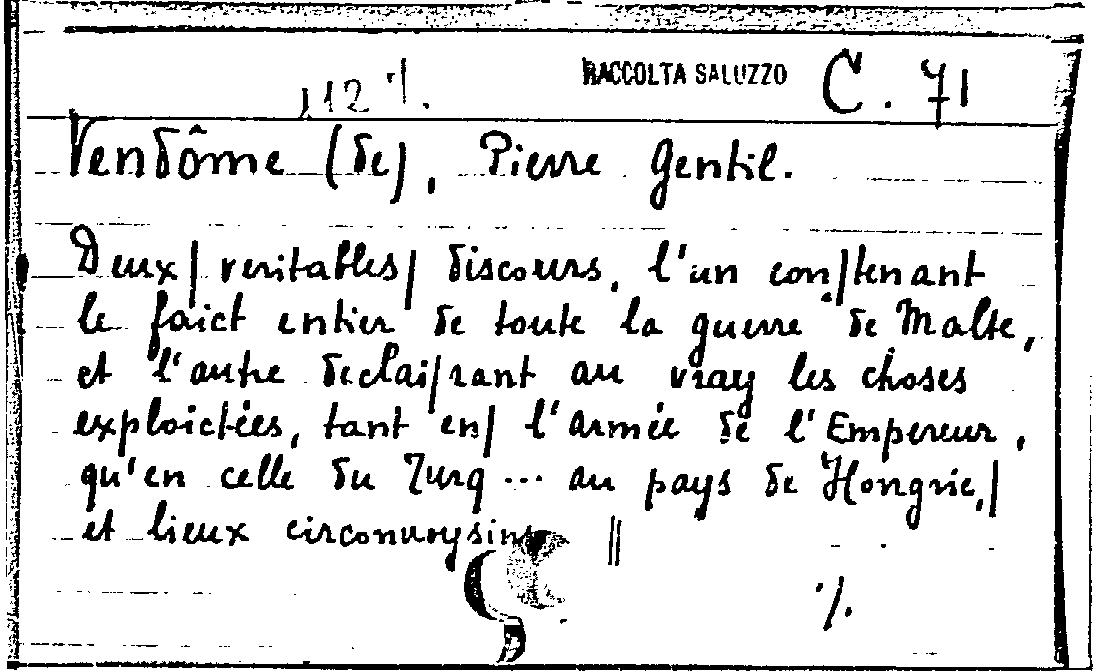 112 ·/. RACCOLTA SALUZZO C. 71
Vendôme (de), Pierre Gentil.
Deux/ veritables/ discours, l'un con/tenant
le faict entier de toute la guerre de Malte,
et l'autre declai/rant au vray les choses
exploictées, tant en/ l'armée de l'Empereur,
qu'en celle du Turq ... au pays de Hongrie,/
et lieux circonvoysins ||
·/.